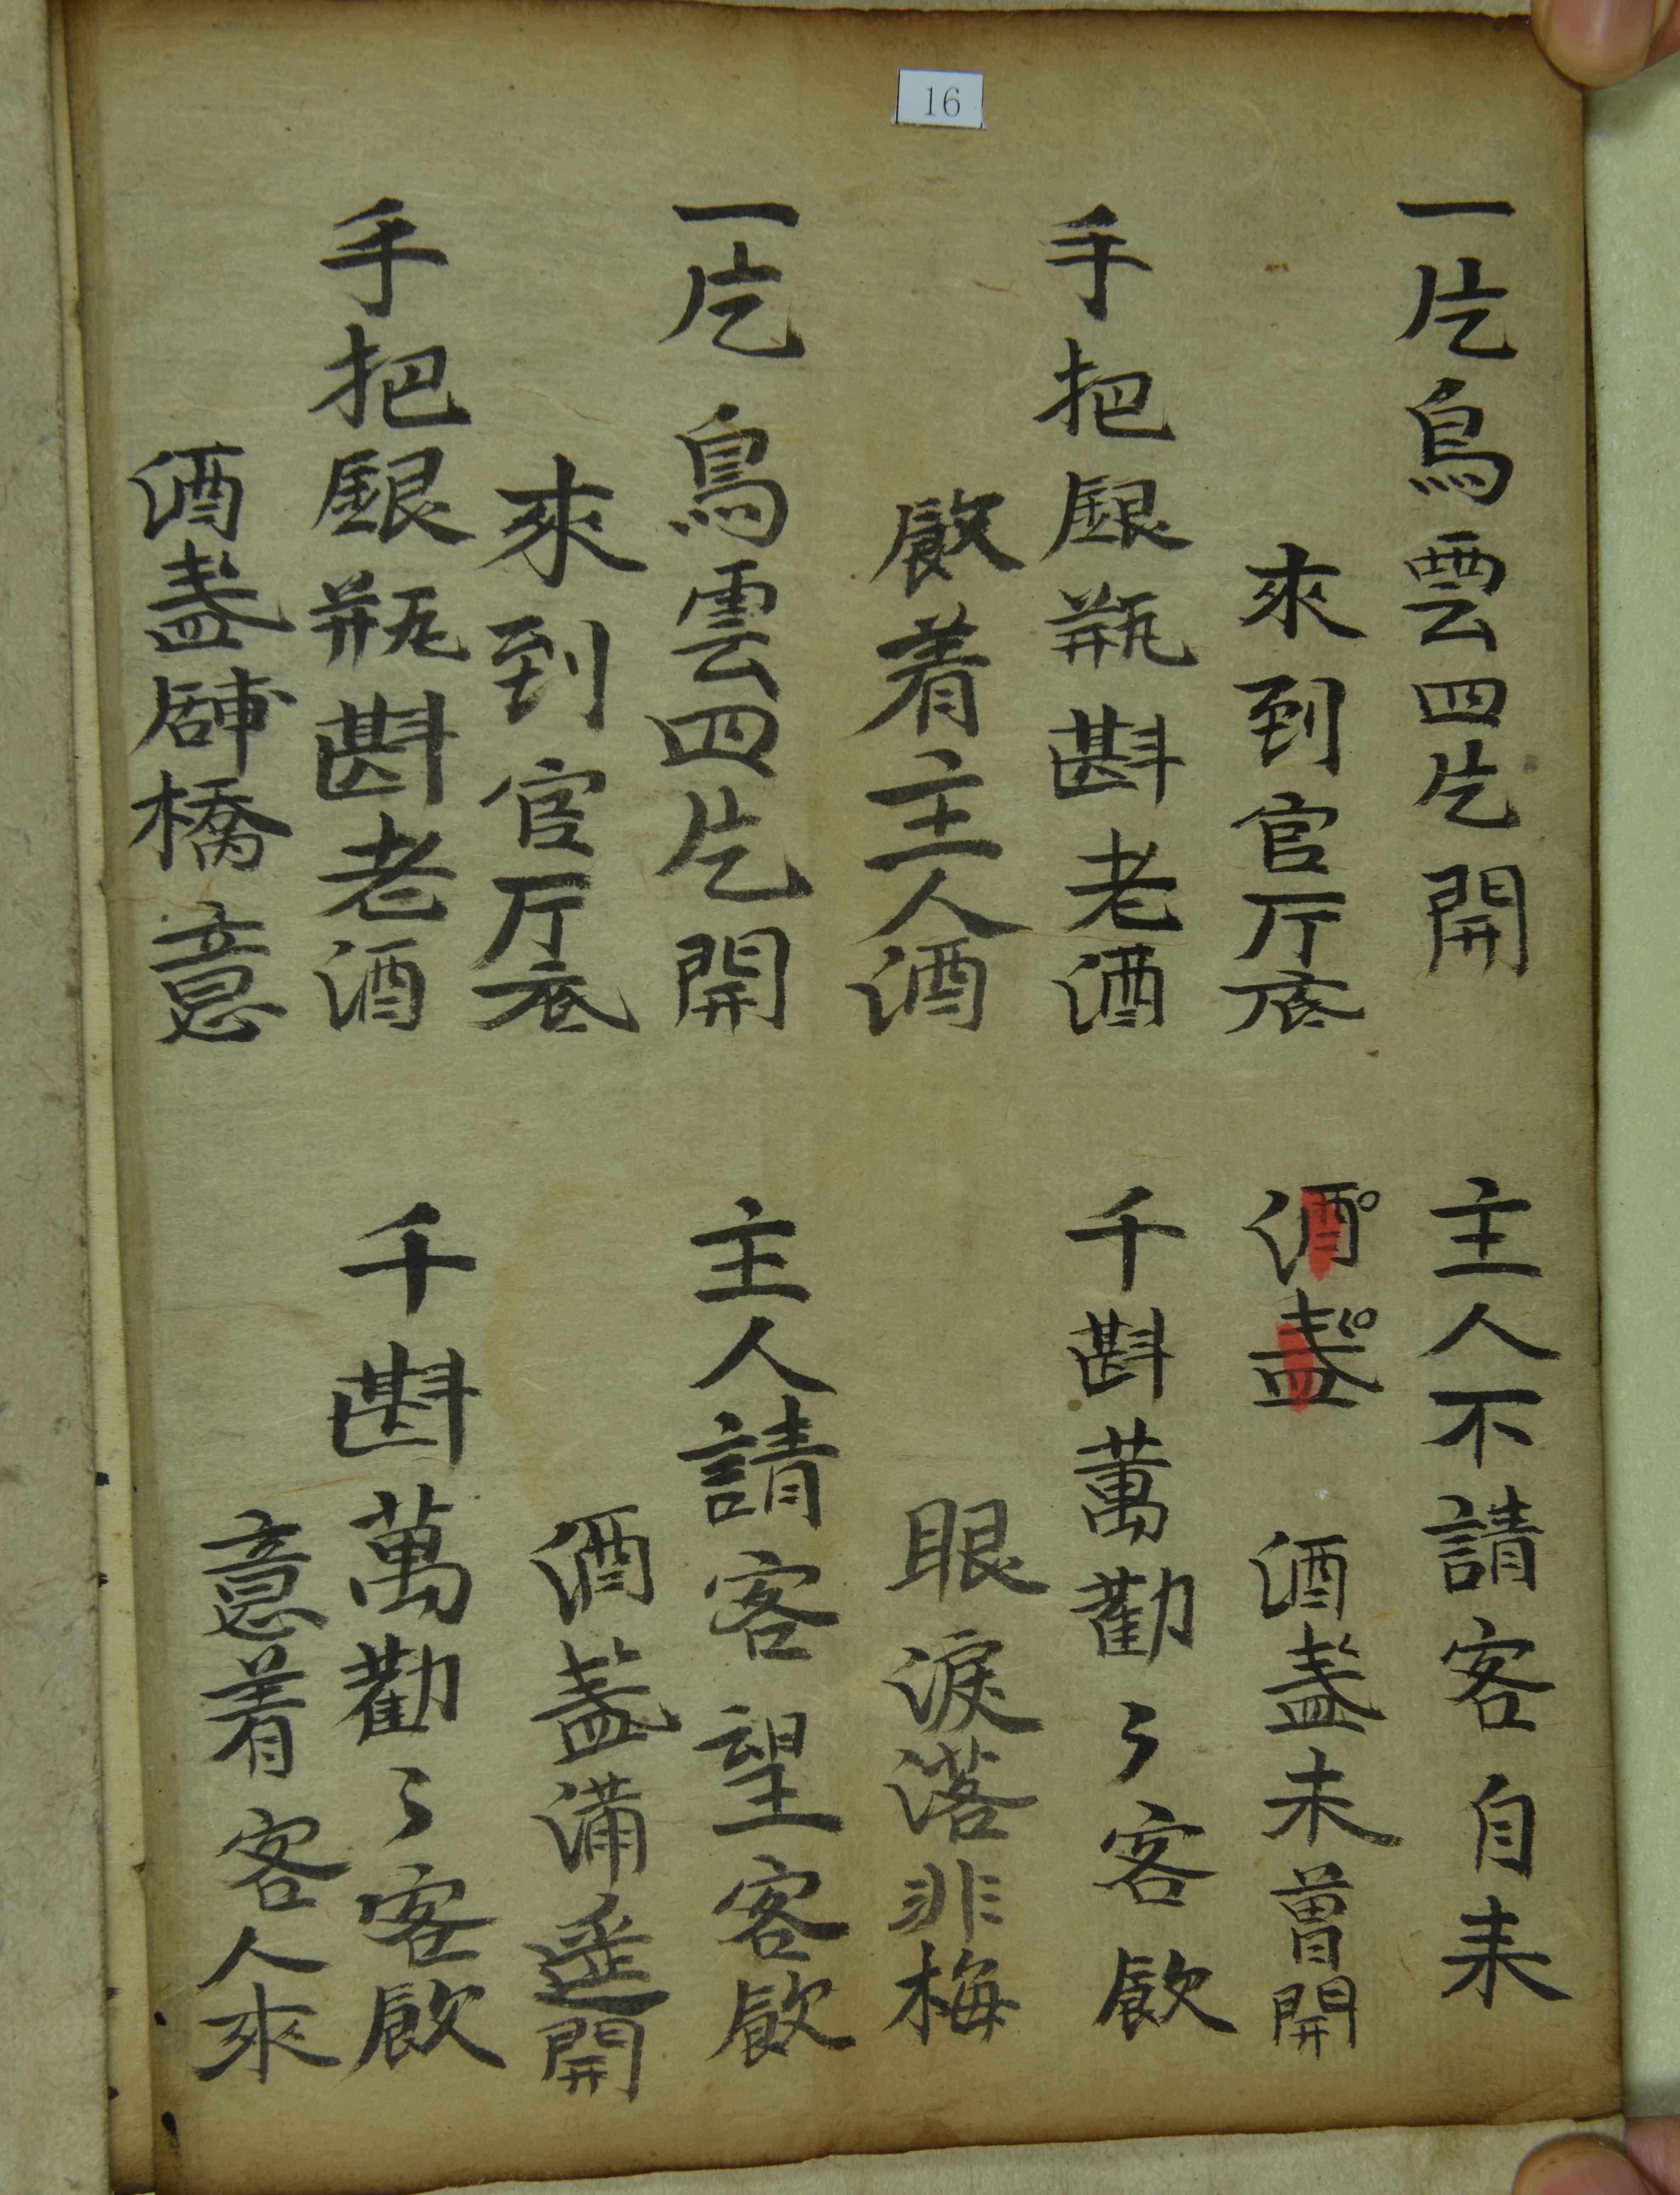 16
一片烏雲四片開
主人不請客自来
來到官厅底
酒盞
酒盞未曽開
手把銀瓶斟老酒
千斟萬勸〻客飲
飲着主人酒
眼淚落非梅
一片烏雲四片開
主人請客望客飲
來到官厅底
酒盞満遥開
手把銀瓶斟老酒
千斟萬勸〻客飲
酒盞橋意
意着客人來